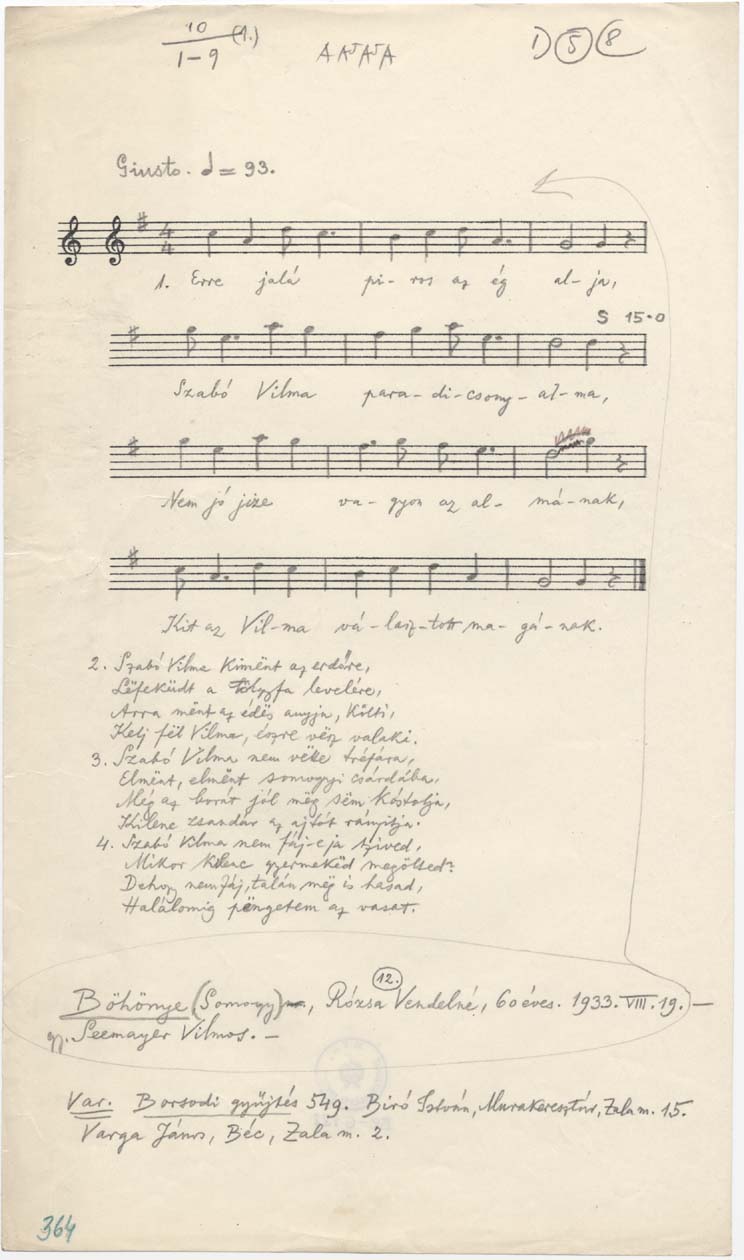 10 (1.)
1-9
A A⁵ A⁵ A
1) 5 8
Giusto. = 93.
4
4
1. Erre jalá pi- ros az ég al- ja,
S 15-0
Szabó Vilma para-di-csony-al-ma,
Nem jó jize va-gyon az al- má-nak,
Kit az Vil-ma vá-lasz-tott ma-gá-nak.
2. Szabó Vilma kimënt az erdőre,
Lëfeküdt a tölgyfa levelére,
Arra mënt az édës anyja, költi,
Kelj fël Vilma, észre vësz valaki.
3. Szabó Vilma nem vëtte tréfára,
Elmënt, elmënt somogyi csárdába,
Még az borát jól mëg sëm kóstolja,
Kilenc zsandár az ajtót rányitja.
4. Szabó Vilma nem fáj-e ja szived,
Mikor kilenc gyermekëd megölted?
Dehogy nem fáj, talán mëg is hasad,
Halálomig pëngetem az vasat.
12.
Böhönye (Somogy) , Rózsa Vendelné, 60 éves. 1933. VIII. 19. —
gy. Seemayer Vilmos. —
Var. Borsodi gyűjtés 549. Biró István, Murakeresztúr, Zala m. 15.
Varga János, Béc, Zala m. 2.
364